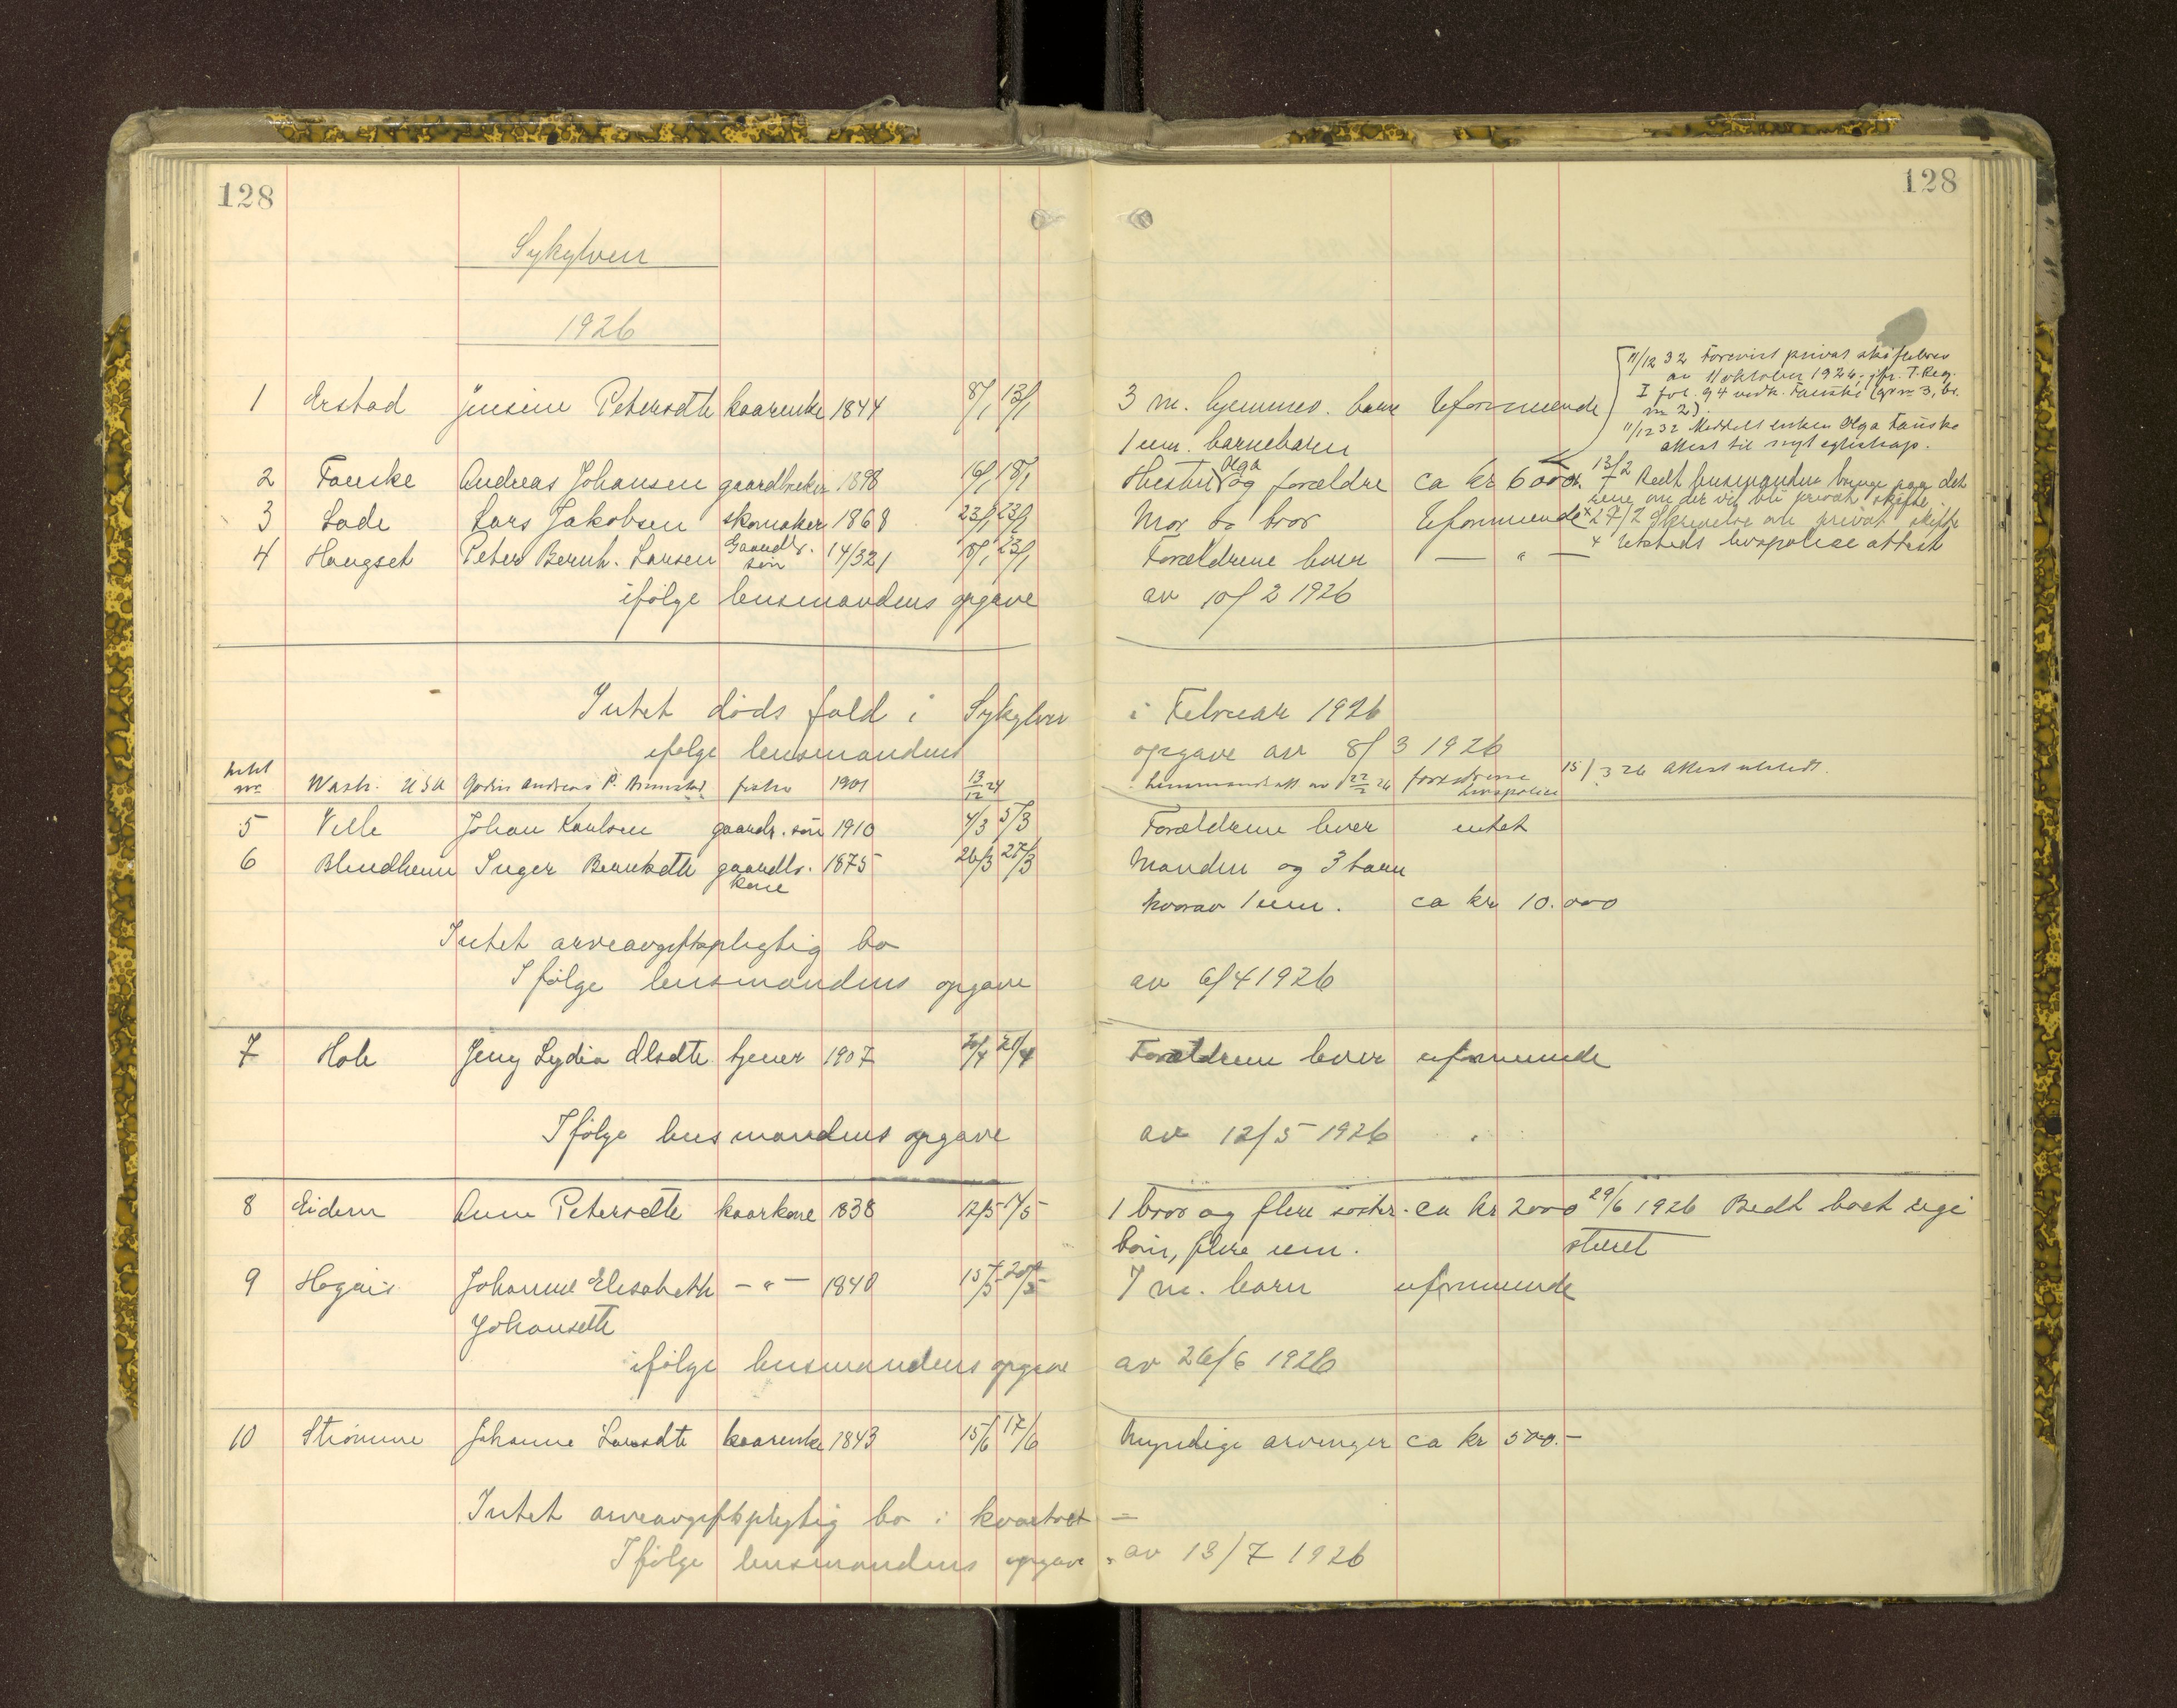 128
128
Sykylven
1926
11/12 32 Forevist privat skiftebrev
av 11 oktober 1926, jfr. T. Reg.
I fol. 94 vedk. Fauske (grnr 3, br.
nr 2).
11/12 32 Meddelt enken Olga Fauske
attest til skifte
1 Erstad Jensine Petersdtr kaarenke 1844 8/1 13/1 3 m. hjemmev. barn Uformuende
1 um. barnebarn
2 Fauske Andreas Johansen gaardbruker 1898 16/1 18/1 Hustru Olga og forældre ca kr 6000. 13/2 Bedt lensmanden bringe paa det
rene om der vil bli privat skifte
3 Lade Lars Jakobsen skomaker 1868 23/1 23/1 Mor og bror Uformuende x 27/2 Skrivelse om privat skifte
x Utstedt livspolise attest
4 Haugset Peter Bernh. Larsen Gaardbr. søn 14/3 21 8/1 23/1 Forældrene lever — " —
ifølge lensmandens opgave av 10/2 1926
Intet døds fald i Sykylven i Februar 1926
ifølge lensmandens opgave av 8/3 1926
intet nr. Wash. USA Andreas P. fisker 1901 13/12 24 lensmandsatt av 22/2 26 forældrene livspolise 15/3 26 Attest utstedt.
5 Velle Johan Karlsen gaardb. søn 1910 4/3 5/3 Forældrene lever intet
6 Blindheim Inger Berntsdtr gaardbr. kone 1875 26/3 27/3 Manden og 3 barn
hvorav 1 um. ca kr 10.000
Intet arveavgiftspligtig bo
Ifølge lensmandens opgave av 6/4 1926
7 Hole Jeny Lydia Olsdtr tjener 1907 20/4 Forældrene lever uformuende
Ifølge lensmandens opgave av 12/5 1926
8 Eidem Ane Petersdtr kaarkone 1838 12/5 17/5 1 bror og flere søster- ca kr 2000 29/6 1926 Bedt boet regi
børn, flere um. streret
9 Johanne Elisabeth — " — 1840 15/5 20/5 7 m. barn uformuende
Johansdtr
ifølge lensmandens opgave av 26/6 1926
10 Strømme Johanne Larsdtr kaarenke 1843 15/6 17/6 Myndige arvinger ca kr 500.-
Intet arveavgiftspligtig bo i kvartalet —
Ifølge lensmandens opgave av 13/7 1926